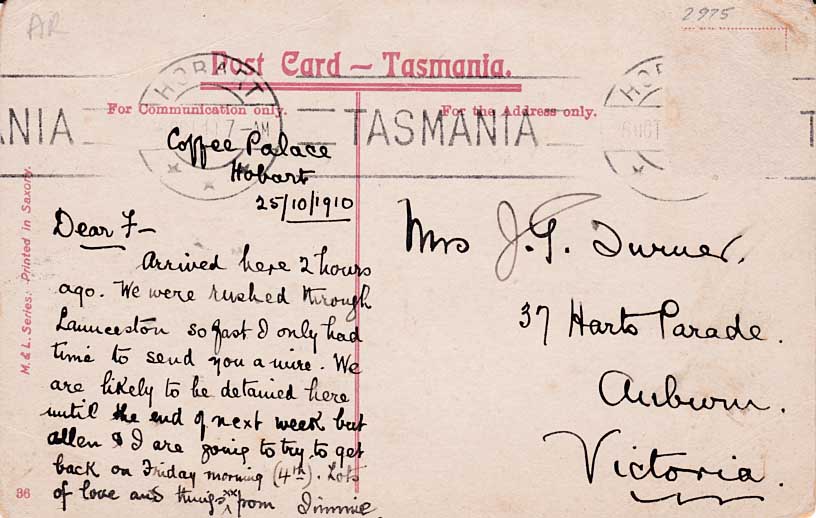 AR
2975
Post Card – Tasmania.
For Communication only.
For the Address only.
HOBART
7-AM
NIA
TASMANIA
HO
OCT
T
Coffee Palace
Hobart
25/10/1910
Dear F–
Arrived here 2 hours
ago. We were rushed through
Launceston so fast I only had
time to send you a wire. We
are likely to be detained here
until the end of next week but
Allen & I are going to try to get
back on Friday morning (4th). Lots
of love and things xx from Jimmie
Mrs J. G. Turner.
37 Harts Parade.
Auburn.
Victoria.
M. & L. Series. Printed in Saxony.
36